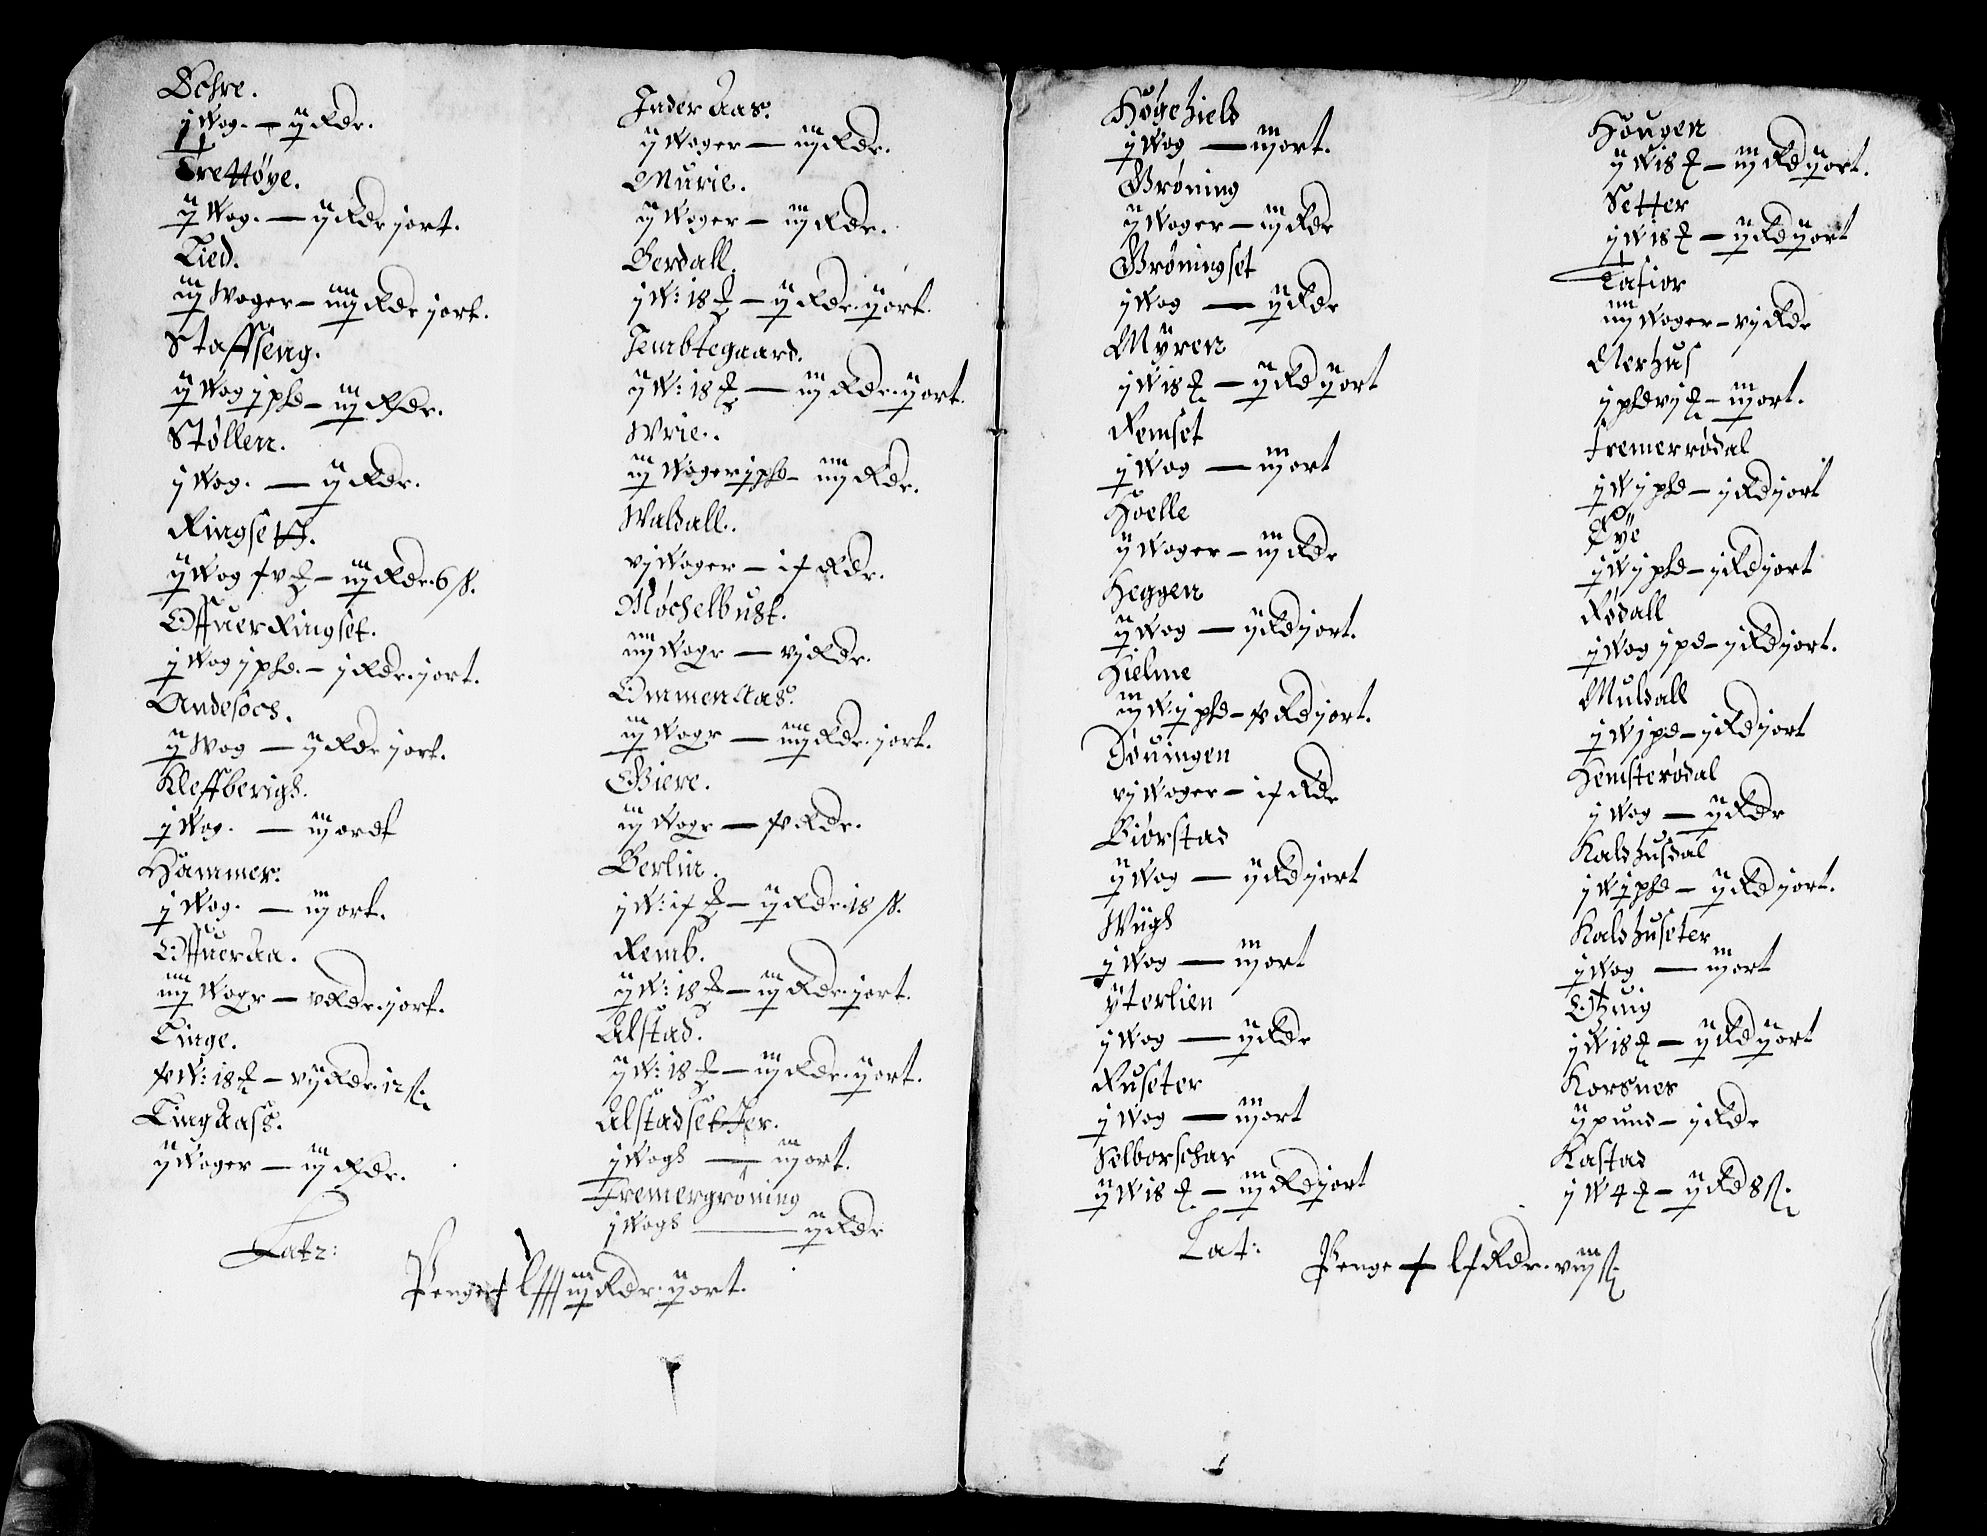 Schre.
j Wog. — ij Rdr.
Trettøye.
ij Wog. — ij Rdr j ort.
Lied.
iij Woger — iiij Rdr j ort.
Staffseng.
ij Wog j phd — iij Rdr.
Støllen.
j Wog. — ij Rdr.
Ringsett.
ij Wog — iij Rdr. 6 s.
Offuer Ringset.
j Wog j phd. — j Rdr. j ort.
Andesocs.
ij Wog — ij Rdr j ort.
Kleffberigh.
j Wog. — iij ordt
Hammer.
j Wog. — iij ort.
Offuer Aa.
iiij Wogr — v Rdr. j ort.
Linge.
W: 18 — vij Rdr. 12 s.
Ling Aass.
ij Woger — iij Rdr.
Inder Aas.
ij Woger — iij Rdr.
Murie.
ij Woger — iij Rdr.
Berdall.
j W: 18 — ij Rdr. ij ort.
Jembtegaard.
ij W: 18 — iij Rdr. ij ort.
Wrie.
iij Woger j phd — iiij Rdr.
Waldall.
vj Woger — Rdr.
Møchelbust.
iiij Wogr — vj Rdr.
Ommen Aas.
iij Wogr — iiij Rdr. j ort.
Giere.
iij Wogr — Rdr.
Berlin.
j W: — ij Rdr. 18 s.
Remb.
ij W: 18 — iij Rdr. j ort.
Alstad.
ij W: 18 — iij Rdr. ij ort.
Alstadsetter.
j Wogh — iij ort.
Fremergrøning
j Wogh — ij Rdr
Latz:
Penge iij Rdr. ij ort.
Høgehield
j Wog — iij ort.
Grøning
ij Woger — iij Rdr
Grøningset
j Wog — ij Rdr
Myren
j W 18 — ij Rd ij ort
Remset
j Wog — iij ort
Hoelle
ij Woger — iij Rdr
Heggen
ij Wog — ij Rd j ort.
Hielme
iij W j phd — Rd j ort.
Døuingen
vj Woger — Rdr
Giørstad
ij Wog — ij Rd j ort
Wiigh
j Wog — iij ort
Yterlien
j Wog — ij Rdr
Ruseter
j Wog — iij ort
Selborschar
ij W 18 — iij Rd j ort
Lat:
Penge Rdr. viij s
Hougen
ij W 18 — iij Rd ij ort.
Setter
j W 18 — ij Rd ij ort
Tafior
iiij Woger — vj Rdr
Nerhus
j phd vj — iij ort.
Fremerrødal
j W j phd — j Rd j ort
Rye
j W j phd — j Rd j ort
Rødall
j Wog j pd — j Rd j ort.
Muldall
j W j pd — j Rd j ort
Hemsterødal
j Wog — ij Rdr
Kaldhusdal
j W j phd — ij Rd j ort.
Kaldhuseter
j Wog — iij ort
j W 18 — ij Rd ij ort
Korsnes
ij pund — j Rdr
Kastad
j W 4 — ij Rd 8 s